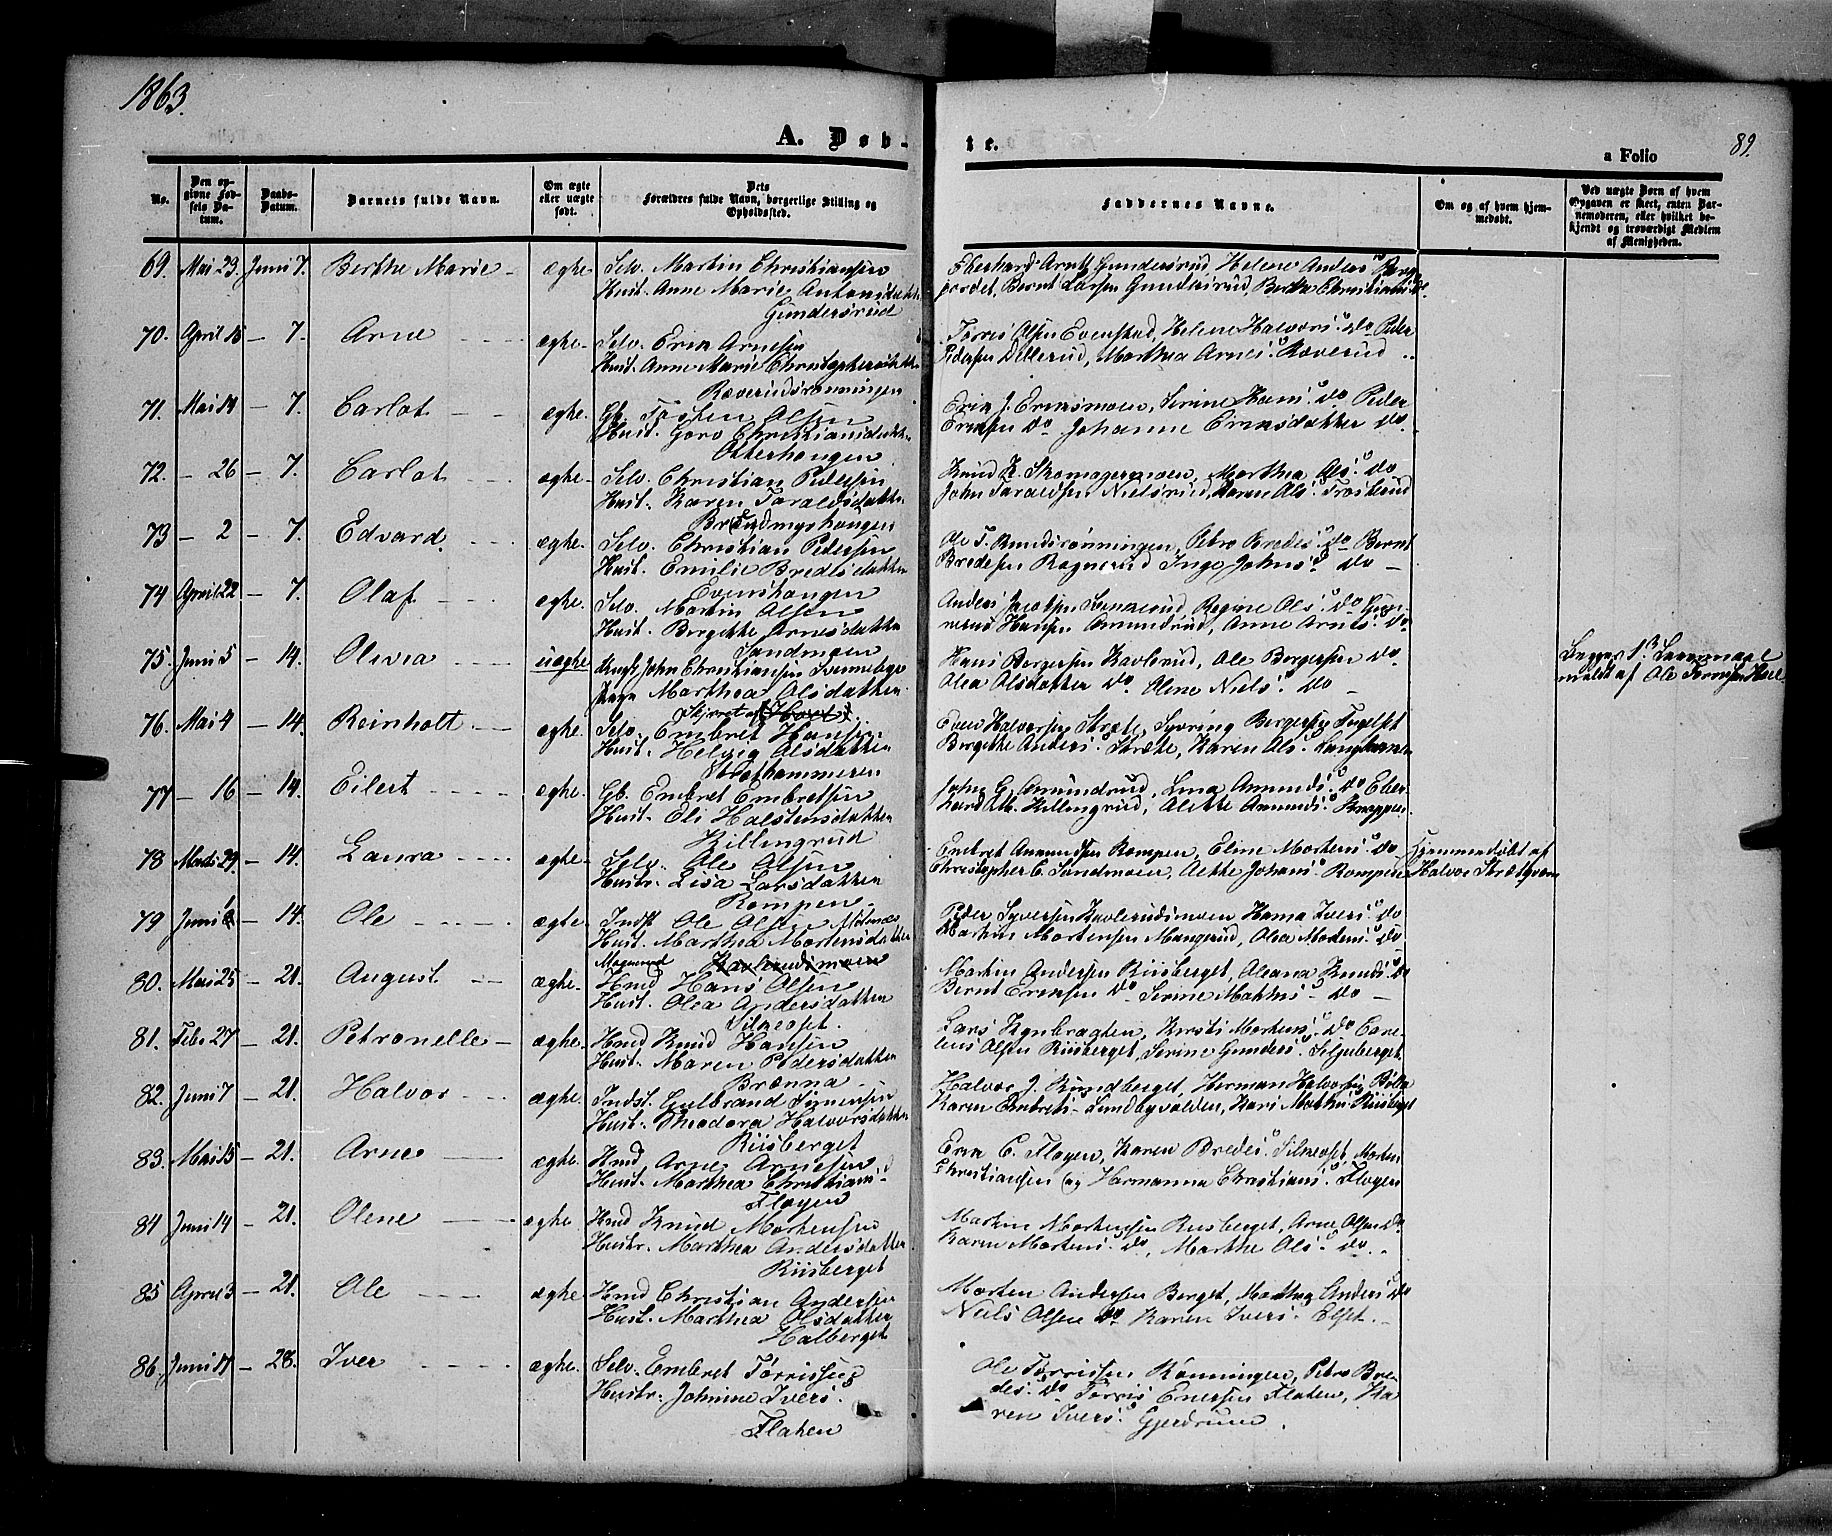 1863.
A. Døb-
te.
a Folio
89.
No.
Den op-
givne Fød-
sels Da-
tum.
Daabs-
Datum.
Barnets fulde Navn.
Om ægte
eller uægte
født.
Dets
Forældres fulde Navn, borgerlige Stilling og
Opholdssted.
Faddernes Navne.
Om og af hvem hjem-
medøbt.
Ved uægte Børn af hvem
Opgaven er skeet, enten Bar-
nemoderen, eller hvilket be-
kjendt og troværdigt Medlem
af Menigheden.
69. Mai 29. Juni 7. Berthe Marie - ægte Selv. Martin Christiansen
Hust. Anne Marie Antonsdatter
Gundersrud
Eberhard Arntz Gundersrud, Helene Anders
Bernt Larsen Gundersrud, Berthe Christians do.
70. April 15 - 7. Arne - ægte. Selv. Erik Arnesen
Hust. Anne Marie Christophersdatter
Ræverudsrønningen
Tørris Olsen Evenstad, Helene Halvors. do Peder
Pedersen Dellerud, Marthea Arnes. Ræverud
71. Mai 14 - 7. Carlot - ægte. Gb. Torsten Olsen
Hust. Goro Christiansdatter
Otterhougen
Erik J. Eriksmoen, Serine Hans. do Peder
Eriksen do Johanne Eriksdatter do.
72. - 26 - 7. Carlot - ægte - Selv. Christian Pedersen
Hust. Karen Taraldsdatter
Knud K. Skomagermoen, Marthea Ols. do
John Taraldsen Nielsrud, Karen Ols. Trøsterud
73 - 2 - 7. Edvard. - ægte. Selv. Christian Pedersen
Hust. Emilie Bredesdatter
Evenshaugen
Ole T. Rundsrønningen, Petra Bredes. do Bernt
Bredesen Ragnerud Inge Johns. do -
74 April 22 - 7. Olaf - ægte. Selv. Martin Olsen
Hust. Birgitte Arnesdatter
Sandmoen
Anders Jacobsen Regine Ols. do Gun-
nerud Hansen Amundrud, Anne Arnts. do.
75. Juni 5 - 14. Olivia - uægte Ungk. John Christiansen
Pige Marthea Olsdatter
Hans Børgersen Kavlerud, Ole Børgersen do
Olea Olsdatter do. Oline Niels. do -
Begges 1ste Leiermaal
meldt af Ole
76. Mai 4 - 14. Reinholt - ægte. Selv. Embret Hansen
Hust. Helvig Olsdatter
Strætkammeren
Even Halvorsen Stræte, Syvring Børgersen
Birgitte Anders. Stræte, Karen Ols.
77 - 16 - 14. Eilert - ægte. Gb. Embret Embretsen
Hust. Eli Halstensdatter
Killingrud
John G. Amundrud, Lina Amunds. do Eber-
hard Killingrud, Alette Amunds. Knappen
78 Marts 29. - 14. Laura - ægte - Selv. Ole Olsen
Hustr. Lisa Larsdatter
Rompen
Embret Amundsen Rompen, Eline Mortens. do
Christopher C. Sandmoen, Aette Johans. Rompen
Hjemmedøbt af
Halvor
79 Juni - 14. Ole - ægte. Indst. Ole Olsen
Hust. Marthea Mortensdatter
Kavlerudsmoen
Peder Syversen Kavlerudsmoen, Hanna Ivers. do
Martin Mortensen Mangerud, Olea Mortens. do
80. Mai 25 - 21. August - ægte. Hmd Hans Olsen
Hust. Olea Andersdatter
Silkeset.
Martin Andersen Riisberget, Oleana Knuds. do
Bernt Eriksen do. Serine Mathis. do -
81. Febr 27 - 21. Petronelle - ægte. Hmd Knud Hansen
Hust. Maren Pedersdatter
Brænna
Lars Kynbraaten, Kirsti Mortens. do Care-
lius Olsen Riisberget, Serine Gunders. Siljuberget
82. Juni 7 - 21. Halvor - ægte. Indst. Gulbrand Simensen
Hust. Theodora Halvorsdatter
Riisberget
Halvor J. Rundberget, Herman Halvorsen
Karen Embrets. Lundbyvolden, Kari Mathis. Riisberget
83. Mai 15 - 21. Arne - ægte. Hmd Arne Arnesen
Hust. Marthea Christians.
Fløyen
Erik C. Fløyen, Karen Bredes. Silkeset, Morten
Christiansen og Hermanna Christians. Fløyen
84 Juni 14 - 21. Olene - ægte. Hmd Knud Mortensen
Hustr. Marthea Andersdatter
Riisberget
Martin Mortensen Riisberget, Arne Olsen do.
Karen Mortens. do, Marthe Ols. do.
85 April 3 - 21. Ole - ægte. Hmd Christian Andersen
Hust. Marthea Olsdatter
Halberget
Morten Andersen Berget, Marthea Anders. do
Niels Olsen do. Karen Ivers. Elset.
86. Juni 17 - 28. Iver - ægte. Selv. Embret Tørrissen
Hustr. Johnine Ivers.
Flaten
Ole Tørrissen Rønningen, Petra Bre-
des. do Tørris Enersen Flaten, Ka
ren Ivers. Gjerdrum.